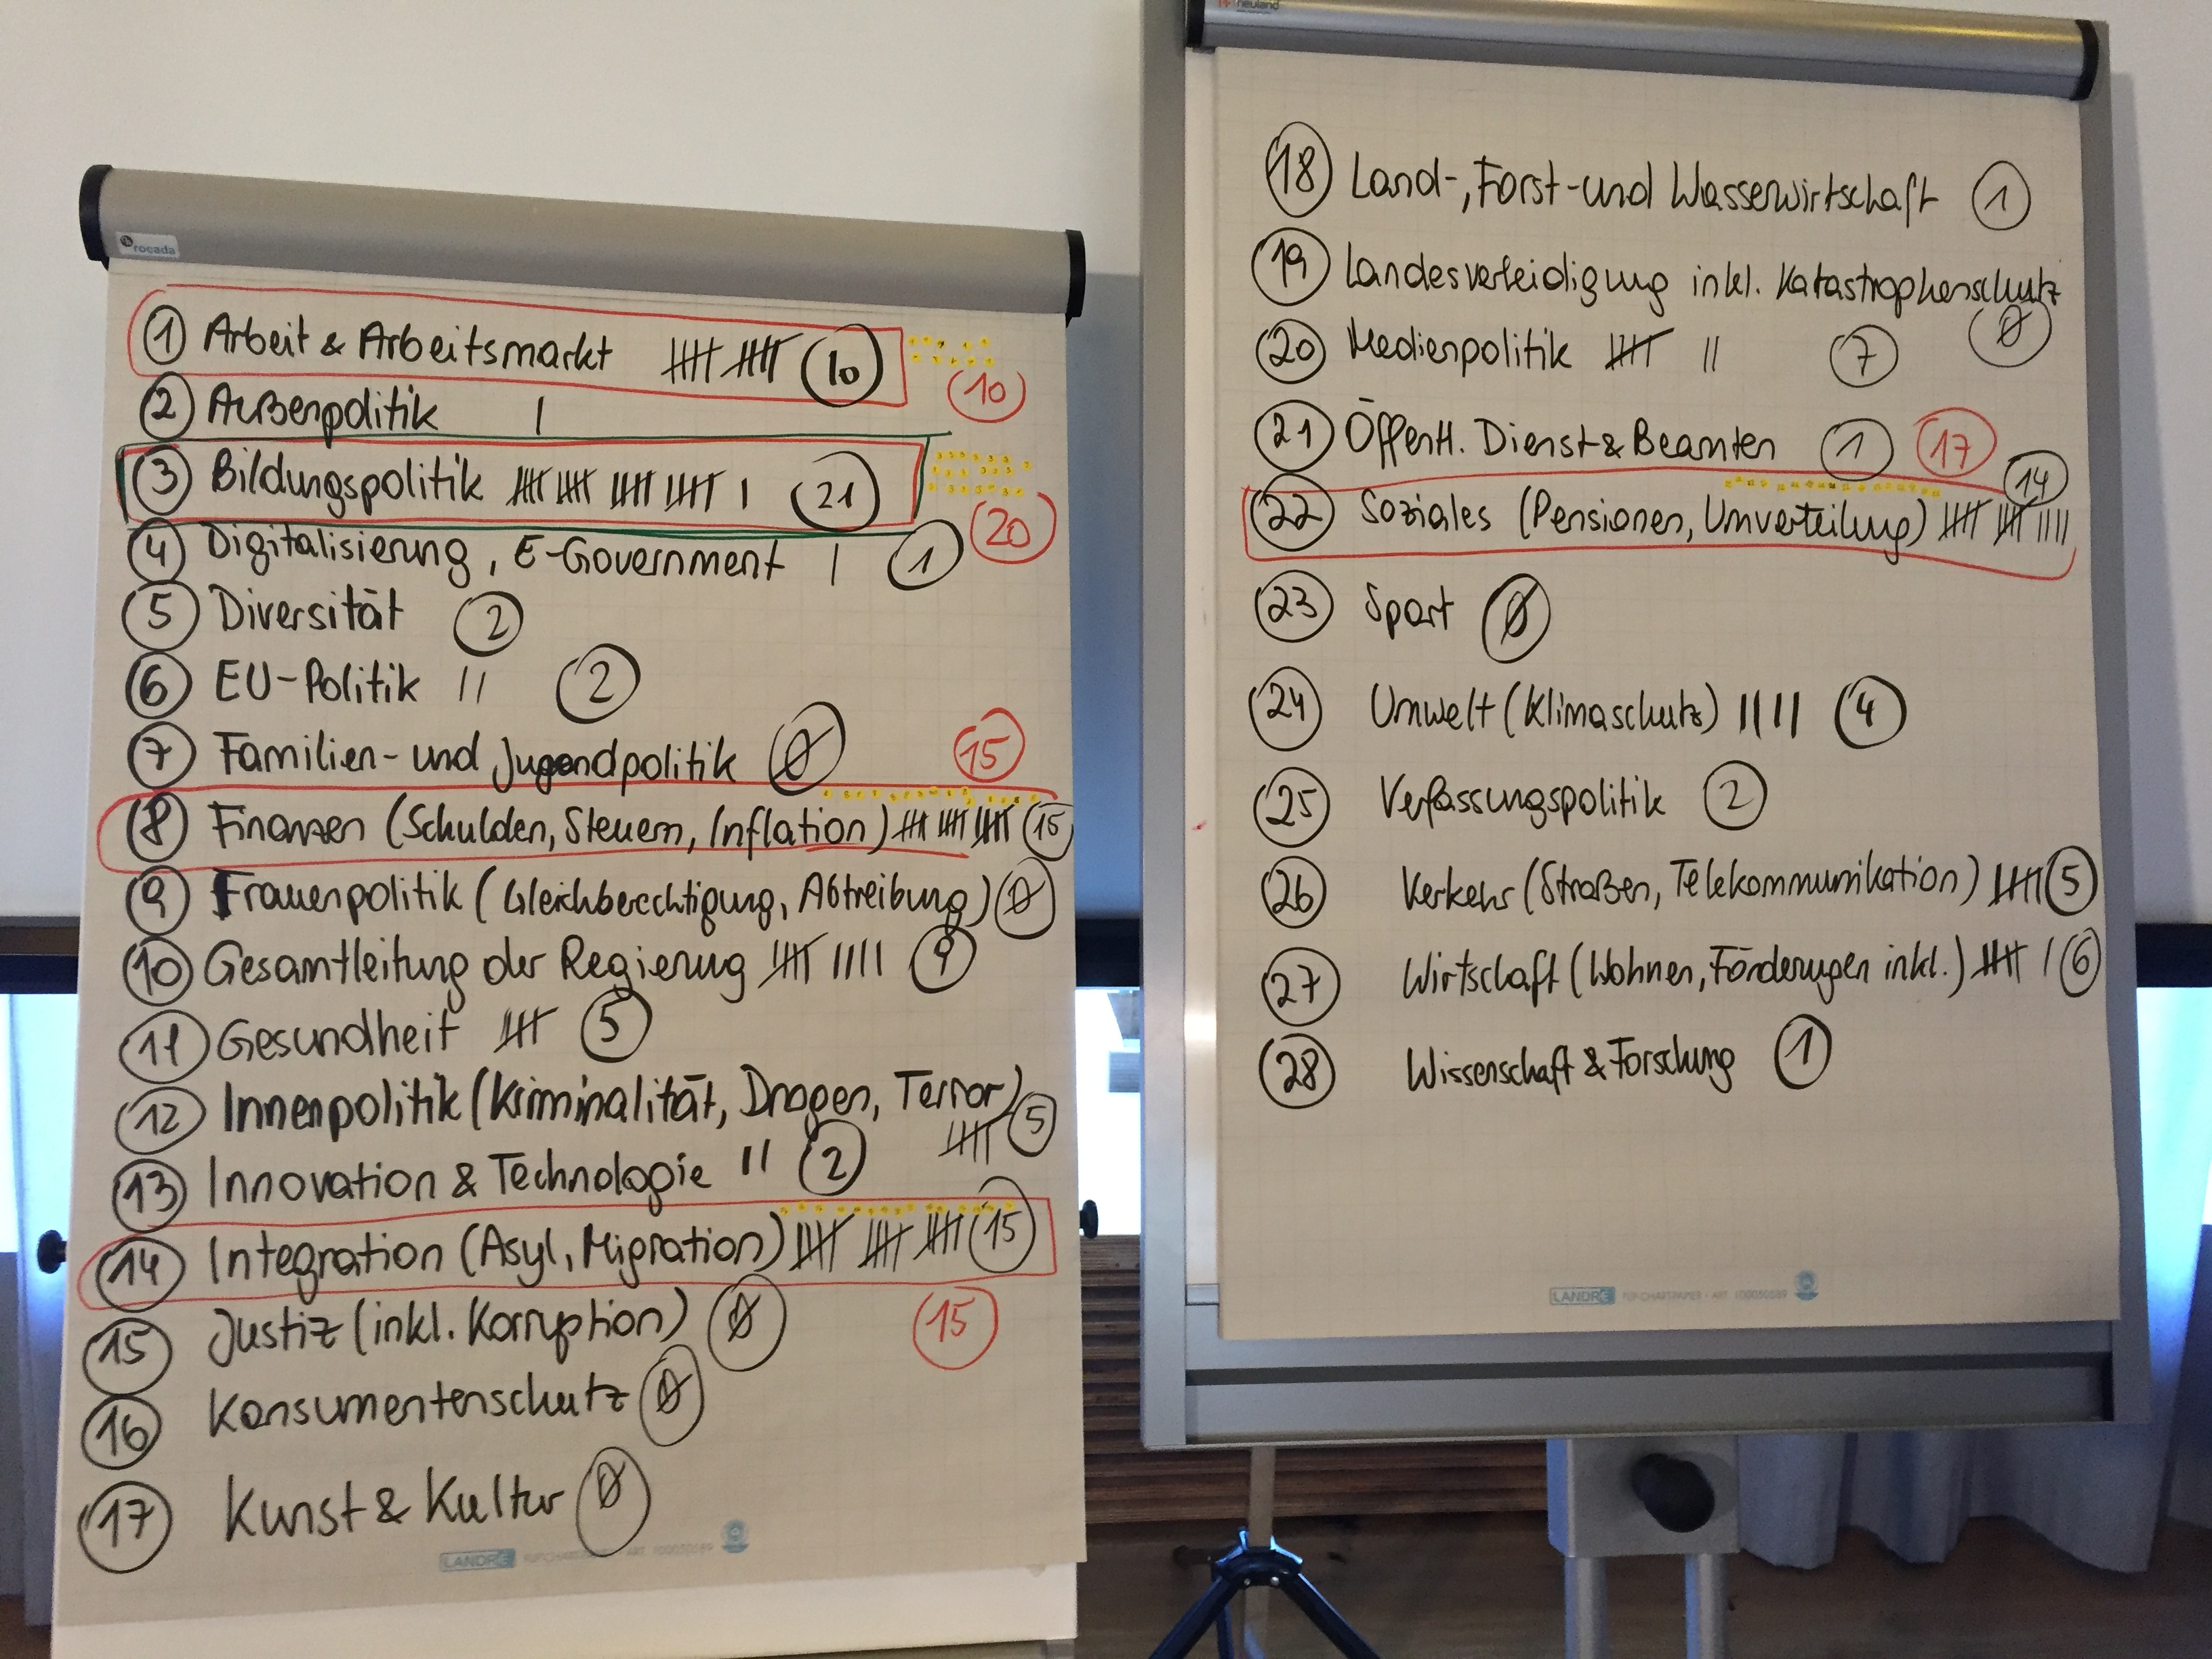 rocada
① Arbeit & Arbeitsmarkt 𝍸 𝍸 10
10
② Außenpolitik |
③ Bildungspolitik 𝍸 𝍸 𝍸 𝍸 | 21
20
④ Digitalisierung, E-Government | 1
⑤ Diversität 2
⑥ EU-Politik || 2
⑦ Familien- und Jugendpolitik 0
15
⑧ Finanzen (Schulden, Steuern, Inflation) 𝍸 𝍸 𝍸 15
⑨ Frauenpolitik (Gleichberechtigung, Abtreibung) 0
⑩ Gesamtleitung der Regierung 𝍸 |||| 9
⑪ Gesundheit 𝍸 5
⑫ Innenpolitik (Kriminalität, Drogen, Terror)
𝍸 5
⑬ Innovation & Technologie || 2
⑭ Integration (Asyl, Migration) 𝍸 𝍸 𝍸 15
⑮ Justiz (inkl. Korruption) 0
15
⑯ Konsumentenschutz 0
⑰ Kunst & Kultur 0
LANDRÉ
neuland
⑱ Land-, Forst- und Wasserwirtschaft 1
⑲ Landesverteidigung inkl. Katastrophenschutz
0
⑳ Medienpolitik 𝍸 || 7
㉑ Öffentl. Dienst & Beamten 1
17
14
㉒ Soziales (Pensionen, Umverteilung) 𝍸 𝍸 ||||
㉓ Sport 0
㉔ Umwelt (Klimaschutz) |||| 4
㉕ Verfassungspolitik 2
㉖ Verkehr (Straßen, Telekommunikation) 𝍸 5
㉗ Wirtschaft (Wohnen, Förderungen inkl.) 𝍸 | 6
㉘ Wissenschaft & Forschung 1
LANDRÉ FLIP-CHARTPAPIER · ART. 100050589